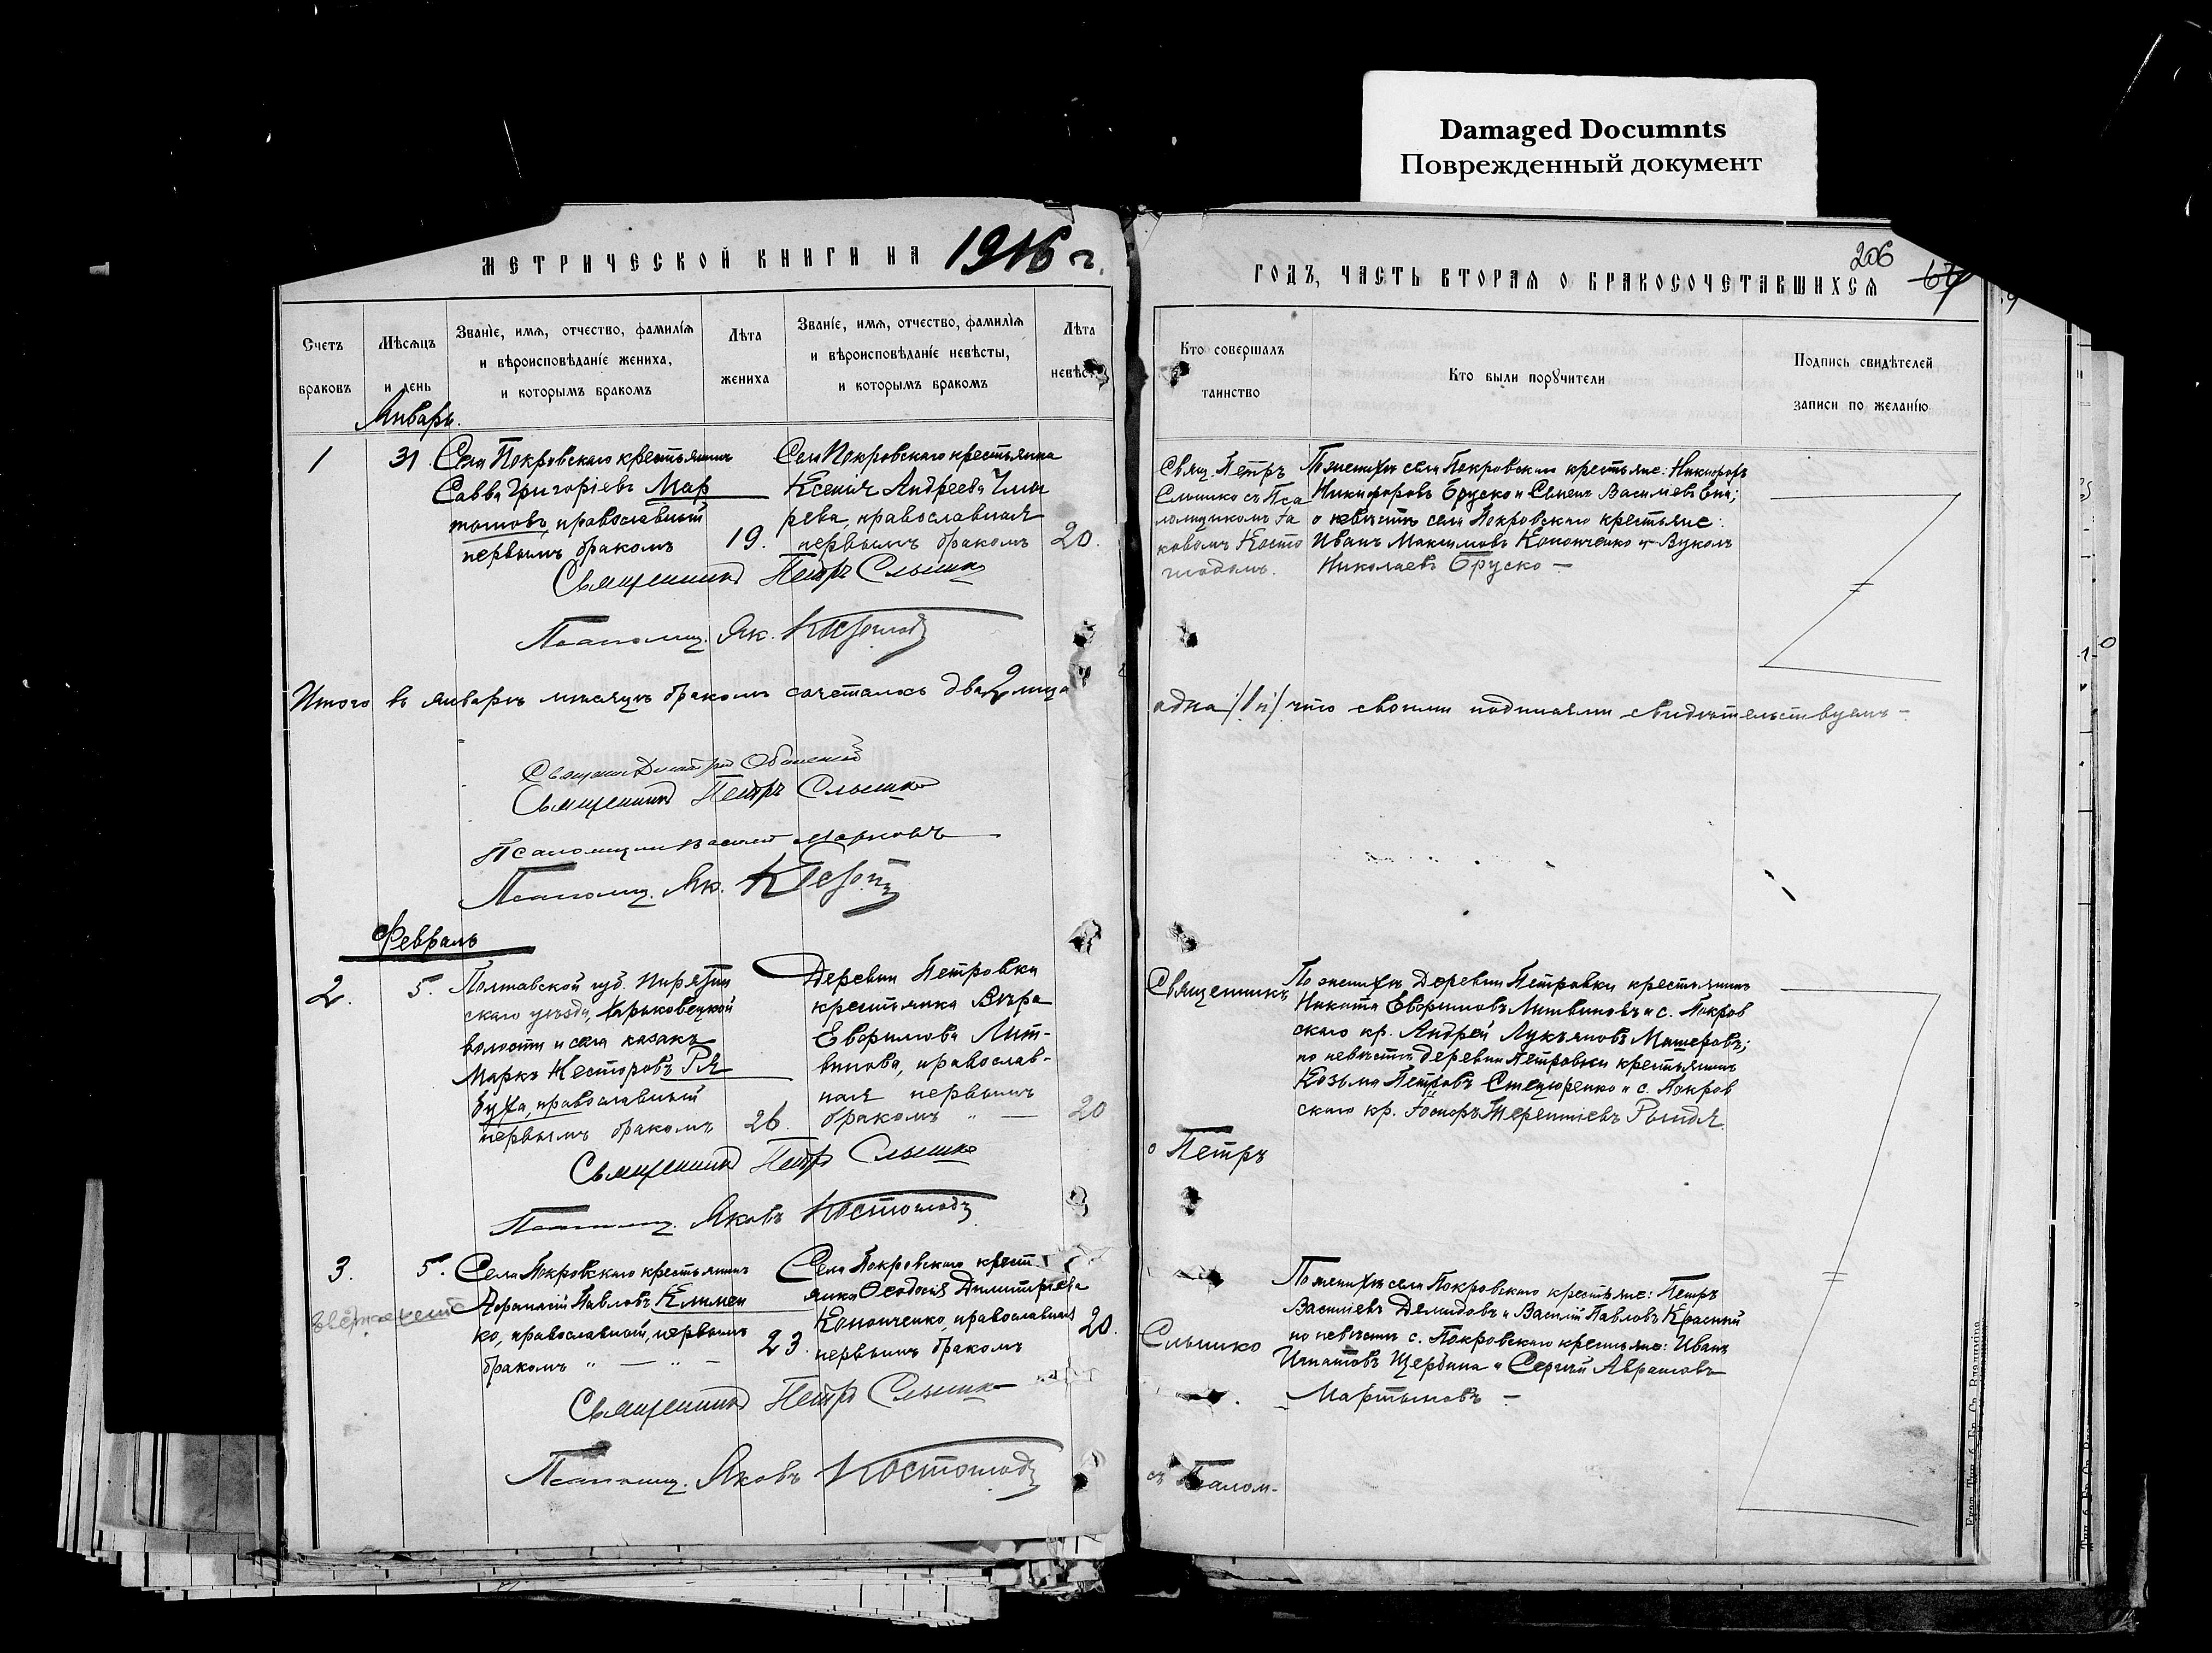 Damaged Documnts
Поврежденный документ
МЕТРИЧЕСКОЙ КНИГИ НА 1916 г.
ГОДЪ, ЧАСТЬ ВТОРАЯ О БРАКОСОЧЕТАВШИХСЯ
206
Счетъ браковъ
Мѣсяцъ и день
Званіе, имя, отчество, фамилія
и вѣроисповѣданіе жениха,
и которымъ бракомъ
Лѣта жениха
Званіе, имя, отчество, фамилія
и вѣроисповѣданіе невѣсты,
и которымъ бракомъ
Лѣта
Кто совершалъ
таинство
Кто были поручители
Подпись свидѣтелей
записи по желанію
Январь.
1
31
Села Покровскаго крестьянинъ
Савва Григоріевъ Мар
православный
первымъ бракомъ
19.
Села Покровскаго крестьянка
Ксенія Андреева
рева, православная
первымъ бракомъ
20.
Свящ. Петръ
Слышко съ Пса
ломщикомъ Іа
ковомъ Косто
По женихѣ села Покровскаго крестьяне: Никифоръ
Никифоровъ Бруско и Семенъ Василіевъ
о невѣстѣ села Покровскаго крестьяне:
Иванъ Максимовъ Кононченко и Вуколъ
Николаевъ Бруско —
Священникъ Петръ Слышко
Псаломщ. Як.
Итого въ январѣ мѣсяцѣ бракомъ сочеталось два 2 лица
одна /1 п/ что своими подписями свидѣтельствуемъ —
Священникъ Петръ Слышко
Псаломщикъ Василій Марковъ
Псаломщ. Як.
Февраль
2.
5.
Полтавской губ. Пирятин
скаго уѣзда, Харьковецкой
волости и села казакъ
Маркъ Несторовъ Ря
буха, православный
первымъ бракомъ
26.
Деревни Петровки
крестьянка Вѣра
Евфимова Лит-
винова, православ-
ная первымъ
бракомъ " —
20
Священникъ
По женихѣ Деревни Петровки крестьянинъ
Никита Евфимовъ Литвиновъ и с. Покров
скаго кр. Андрей Лукьяновъ Машеровъ;
по невѣстѣ деревни Петровки крестьянинъ
Козьма Петровъ Стецюренко и с. Покров
скаго кр. Іосифъ Терентіевъ Рындя
Петръ
Священникъ Петръ Слышко
Псаломщ. Яковъ Костоглодъ
3.
5.
Села Покровскаго крестьянинъ
Афанасій Павловъ Климен
ко, православный, первымъ
бракомъ " — " —
23.
Села Покровскаго крест
янка Ѳеодосія Димитріева
Кононченко, православная
первымъ бракомъ
20.
Слышко
По женихѣ села Покровскаго крестьяне: Петръ
Василіевъ Демидовъ и Василій Павловъ Красный
по невѣстѣ с. Покровскаго крестьяне: Иванъ
Игнатовъ Щербина и Сергій Аврамовъ
Мартыновъ —
Священникъ Петръ Слышко
Псаломщ. Яковъ Костоглодъ
съ Псалом-